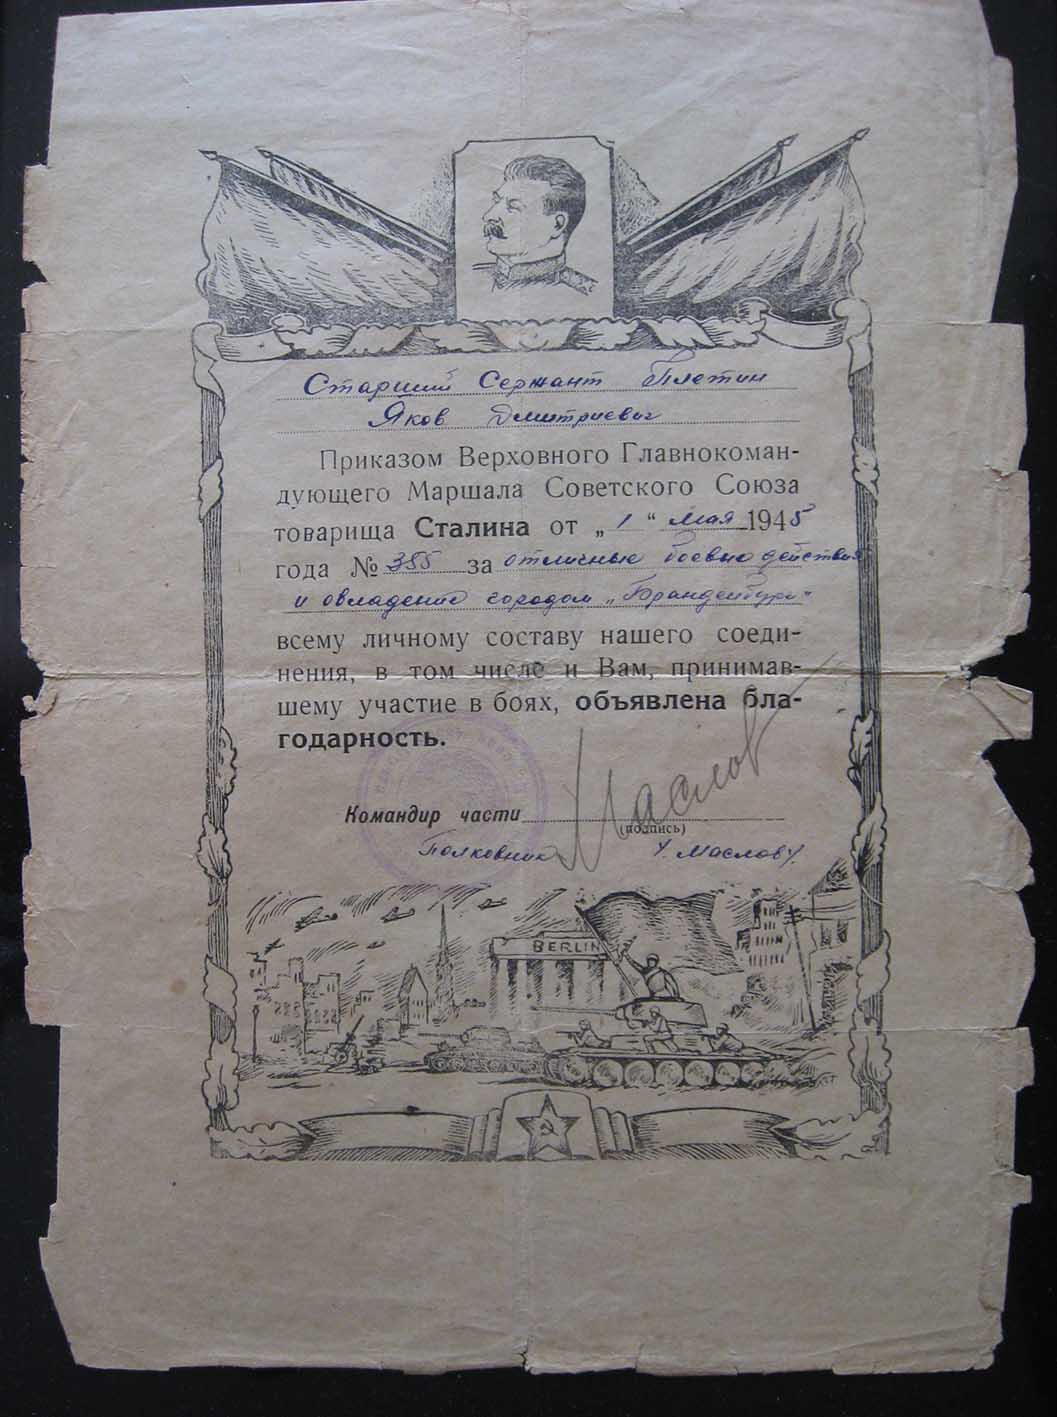 Старший Сержант Плетин
Яков Дмитриевич
Приказом Верховного Главнокоман-
дующего Маршала Советского Союза
товарища Сталина от „1“ мая 1945
года № 355 за отличные боевые действия
и овладение городом „Бранденбург“
всему личному составу нашего соеди-
нения, в том числе и Вам, принимав-
шему участие в боях, объявлена бла-
годарность.
Командир части Маслов
(подпись)
Полковник / Маслов /.
BERLIN